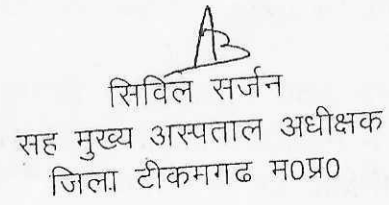 सिविल सर्जन
सह मुख्य अस्पताल अधीक्षक
जिला टीकमगढ म०प्र०